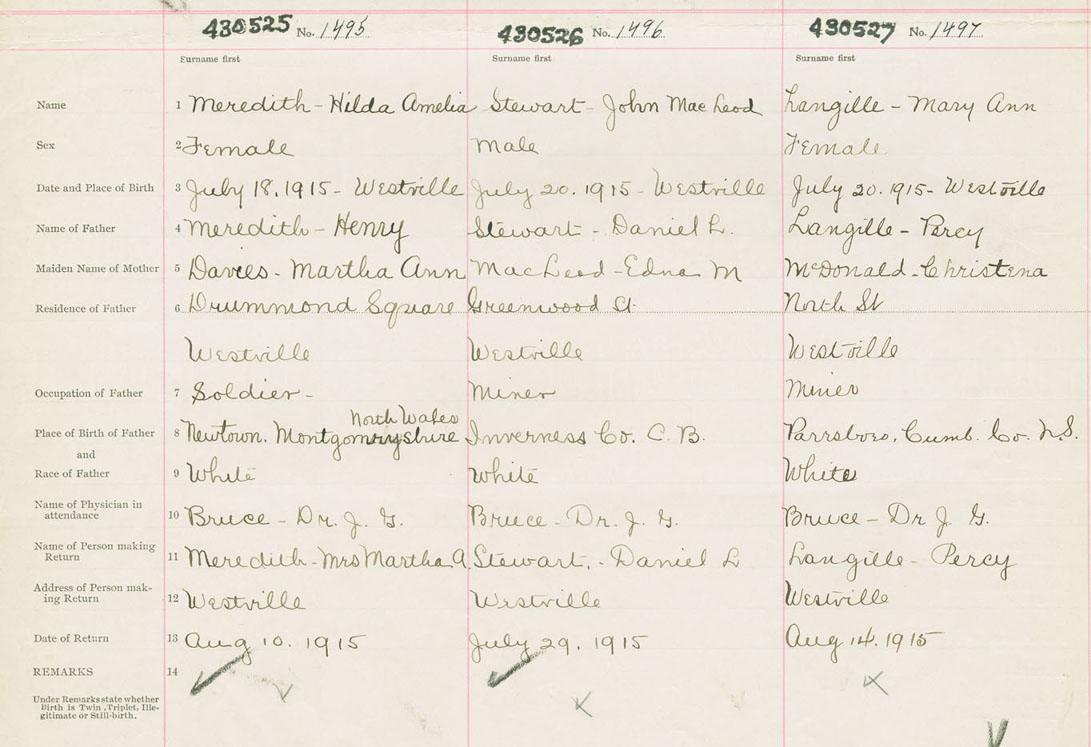 430525 No. 1495 430526 No. 1496 430527 No. 1497
Surname first Surname first Surname first
Name 1 Meredith - Hilda Amelia Stewart - John MacLeod Langille - Mary Ann
Sex 2 Female Male Female
Date and Place of Birth 3 July 18, 1915 - Westville July 20. 1915 - Westville July 20. 1915 - Westville
Name of Father 4 Meredith - Henry Stewart - Daniel L. Langille - Percy
Maiden Name of Mother 5 Davies - Martha Ann MacLeod - Edna M McDonald - Christena
Residence of Father 6 Drummond Square Greenwood St North St
Westville Westville Westville
Occupation of Father 7 Soldier - Miner Miner
North Wales
Place of Birth of Father 8 Newtown. Montgomryshire Inverness Co. C. B. Parrsboro, Cumb. Co. N.S.
and
Race of Father 9 White White White
Name of Physician in
attendance 10 Bruce - Dr. J. G. Bruce - Dr. J. G. Bruce - Dr J. G.
Name of Person making
Return 11 Meredith - Mrs Martha A. Stewart, - Daniel L Langille - Percy
Address of Person mak-
ing Return 12 Westville Westville Westville
Date of Return 13 Aug 10. 1915 July 29, 1915 Aug 14. 1915
REMARKS 14
Under Remarks state whether
Birth is Twin, Triplet, Ille-
gitimate or Still-birth.